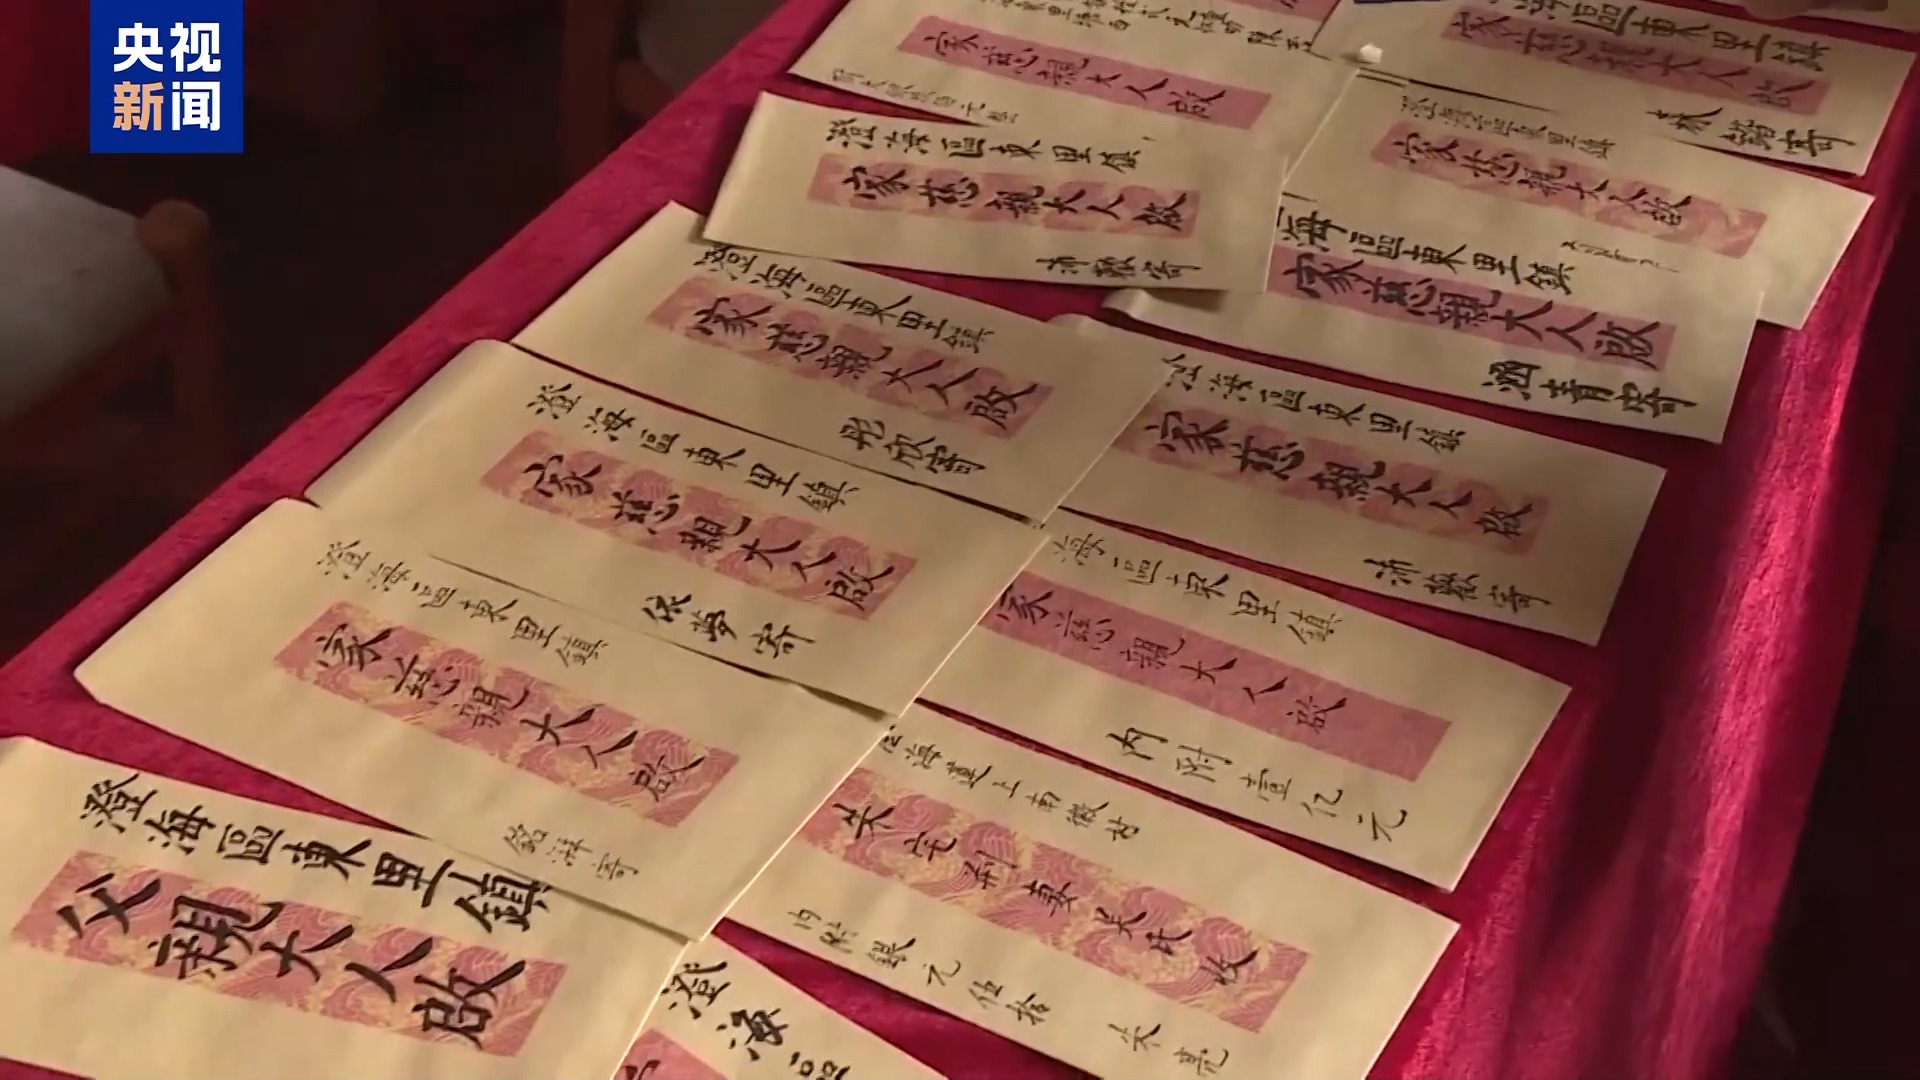 央视
新闻
家慈親大人啟
澄海區東里鎮
家慈親大人啟
寄
澄海區東里鎮
家慈親大人啟
寄
澄海區東里鎮
家慈親大人啟
海區東里鎮
家慈親大人啟
洒青寄
澄海區東里鎮
家慈親大人啟
欣寄
海區東里鎮
家慈親大人啟
沛薇寄
澄海區東里鎮
家慈親大人啟
依夢寄
海區東里鎮
家慈親大人啟
内附壹亿元
澄海區東里鎮
家慈親大人啟
寄
朱宅荆妻吴氏收
内附銀元伍拾
澄海區東里鎮
父親大人啟
澄海區